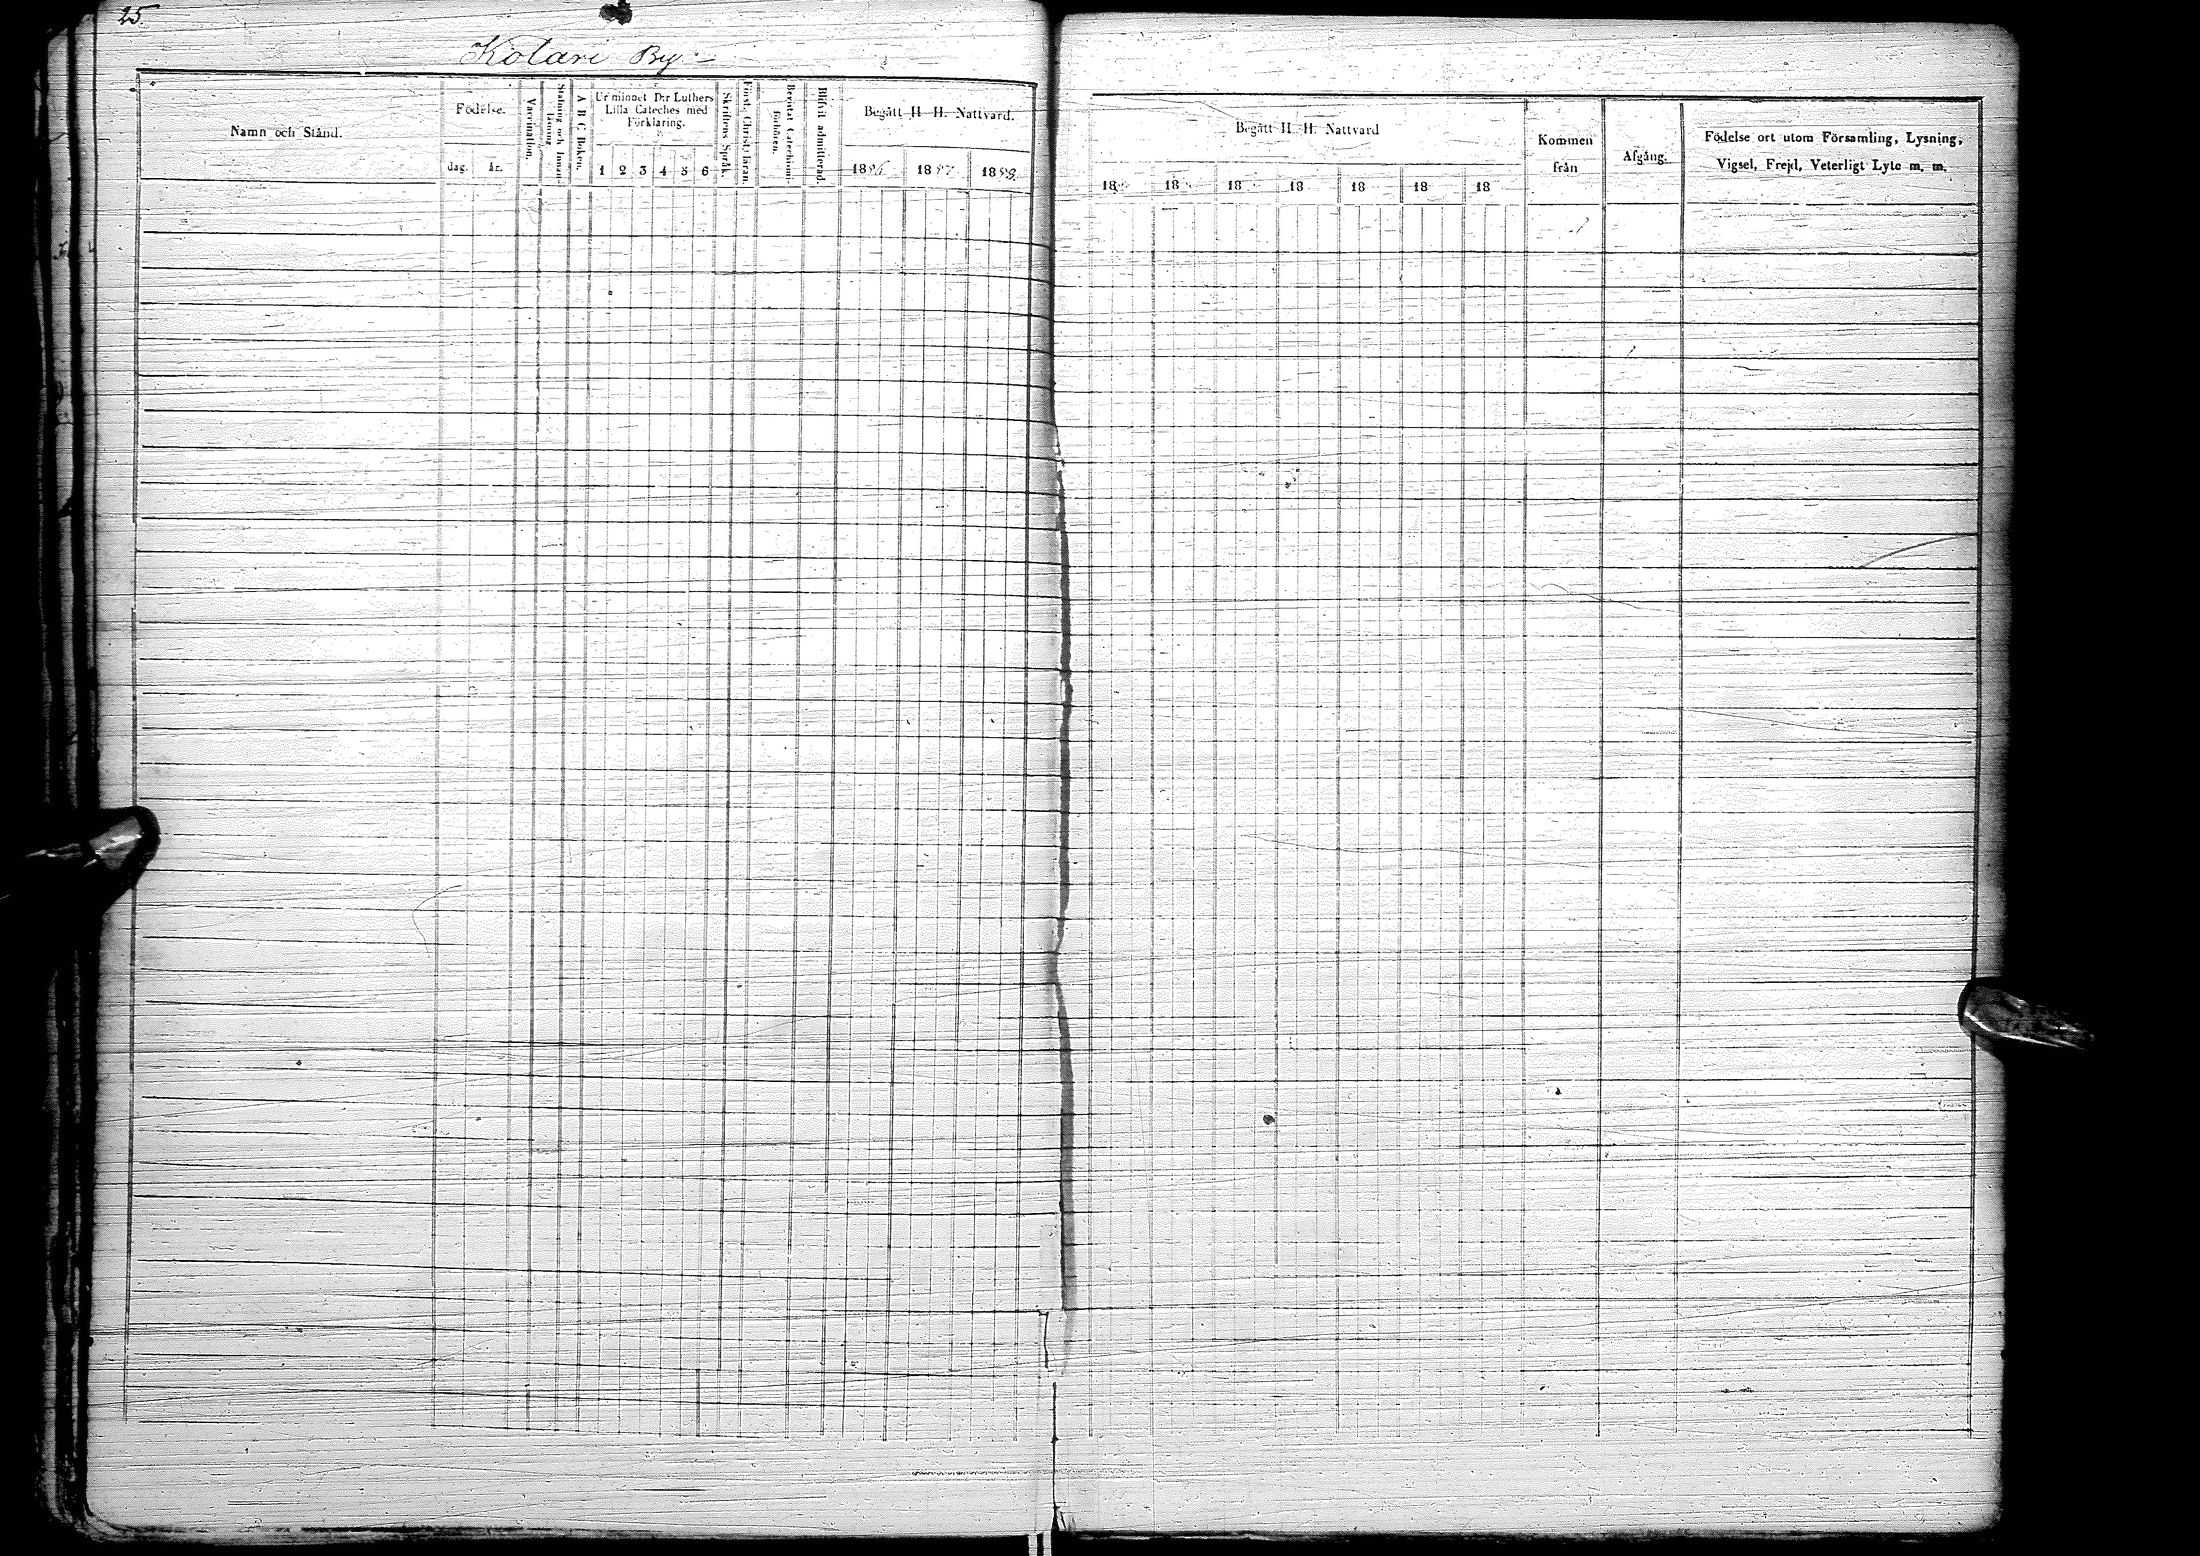 25.
Kolari By
Namn och Stånd.
Födelse.
dag.
år.
Vaccination.
Stafning och Innan-
läsning
A B C Boken.
Ur minnet D:r Luthers
Lilla Cateches med
Förklaring.
1 2 3 4 5 6
Skriftens Språk.
Först. Christ. läran.
Begått H. H. Nattvard.
18
18
18
Begått H. H. Nattvard
18 18 18 18 18 18 18
Kommen
från
Afgång.
Födelse ort utom Församling, Lysning,
Vigsel, Frejd, Veterligt Lyte m. m.